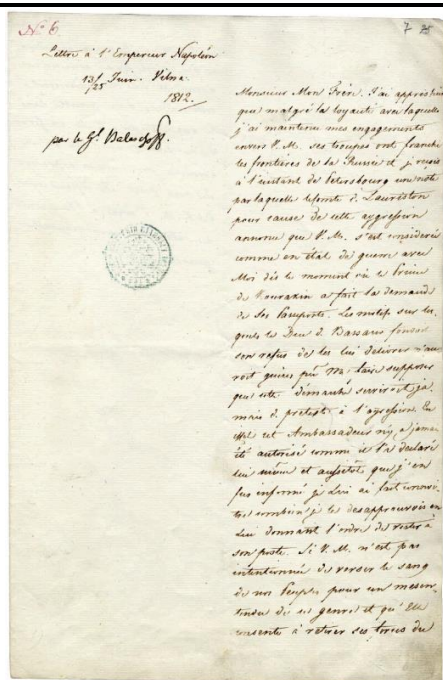 № 6
7
Lettre à l'Empereur Napoléon
13/25 Juin. Vilna
1812.
par le Gl. Balachoff.
Monsieur Mon Frère. J'ai appris hier
que malgré la loyauté avec laquelle
j'ai maintenu mes engagements
envers V. M. ses troupes ont franchi
les frontières de la Russie et je reçois
à l'instant de Petersbourg une note
par laquelle le Comte de Lauriston
pour cause de cette aggression
annonce que V. M. s'est considérée
comme en état de guerre avec
Moi dès le moment où le Prince
de Kourakin a fait la demande
de Ses Passeports. Les motifs sur les-
quels le Duc de Bassano fondoit
son refus de les lui délivrer n'au-
roit guères pu Me faire supposer
que cette démarche serviroit ja-
mais de prétexte à l'agression. En
effet cet Ambassadeur n'y a jamais
été autorisé comme il l'a déclaré
lui même et aussitôt que j'en
fus informé je Lui ai fait connoi-
tre combien je le desapprouvois en
Lui donnant l'ordre de rester à
son poste. Si V. M. n'est pas
intentionnée de verser le sang
de nos Peuples pour un mesen-
tendu de ce genre et qu'Elle
consente à retirer ses forces du